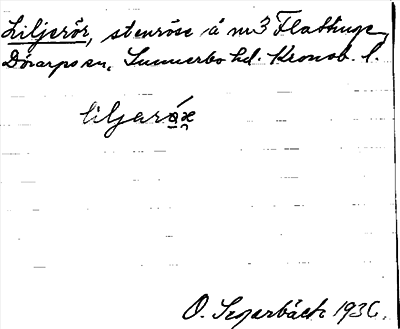 Liljerör, stenröse å nr 3 Flattinge,
Dörarps sn, Sunnerbo hd. Kronob. l.
liljarǻx
O. Segerbäck 1936.